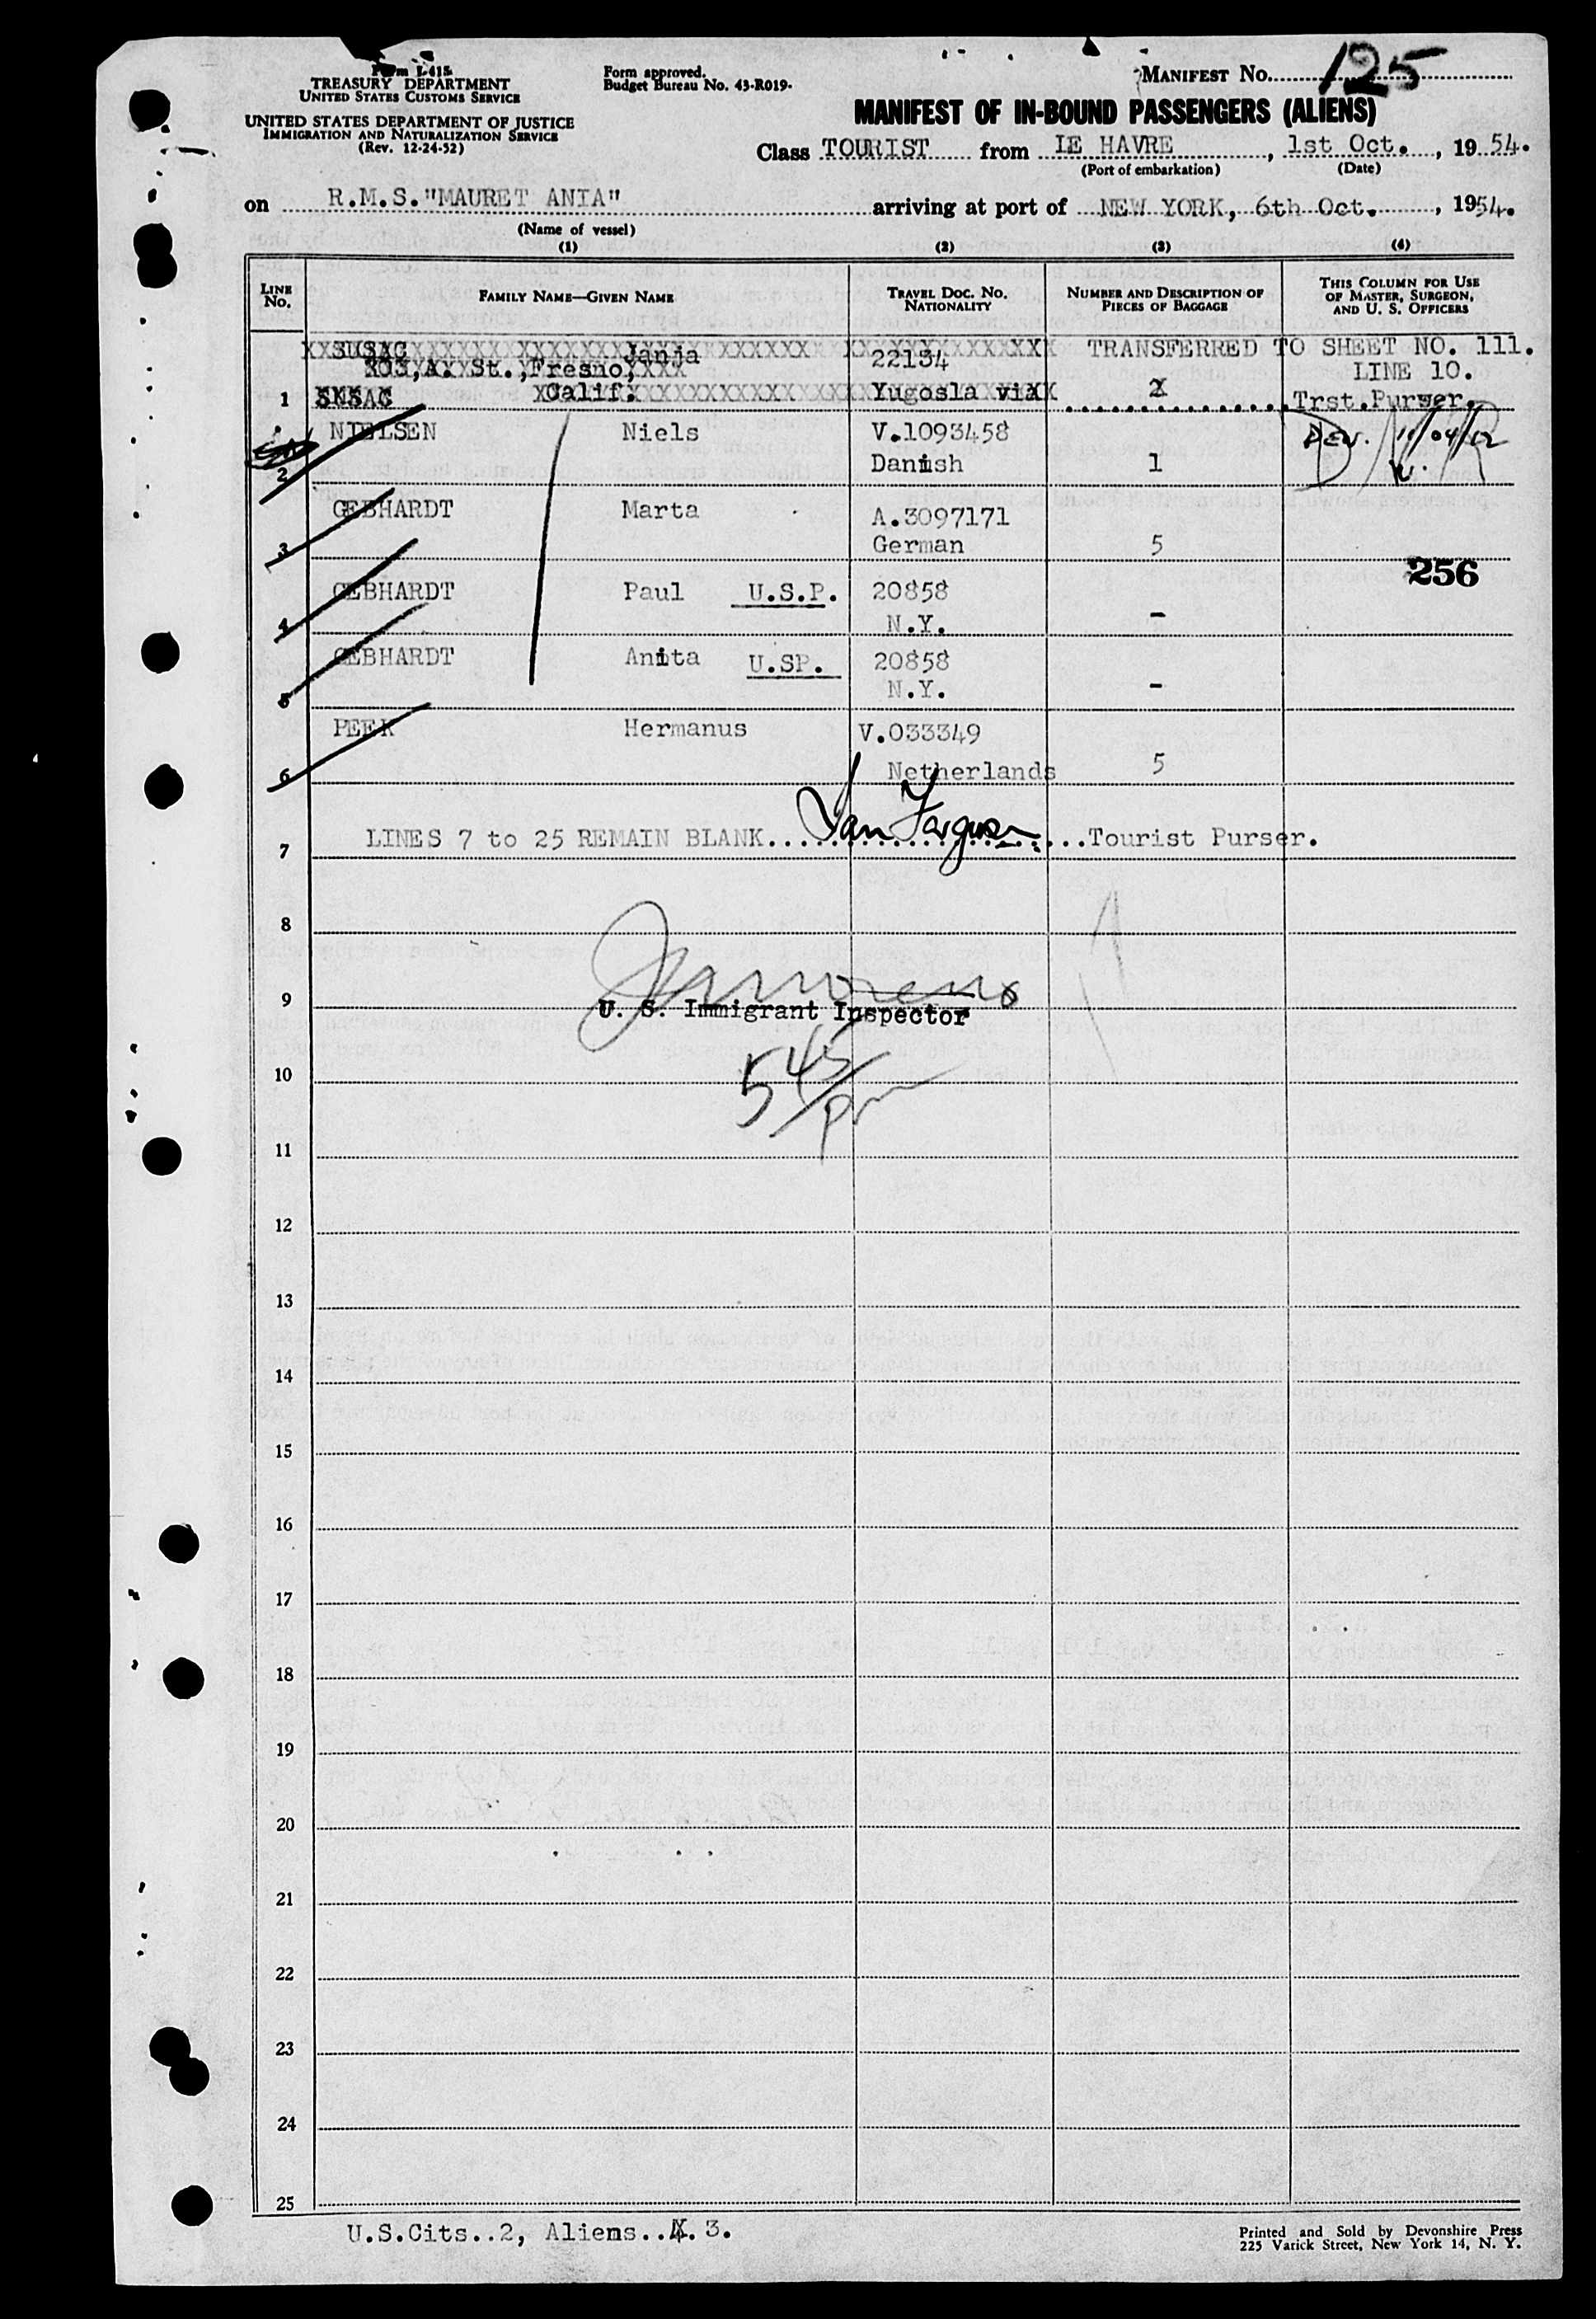 Form I-415
TREASURY DEPARTMENT
UNITED STATES CUSTOMS SERVICE
UNITED STATES DEPARTMENT OF JUSTICE
IMMIGRATION AND NATURALIZATION SERVICE
(Rev. 12-24-52)
Form approved.
Budget Bureau No. 43-R019-
MANIFEST No. 125
MANIFEST OF IN-BOUND PASSENGERS (ALIENS)
Class TOURIST from LE HAVRE, 1st Oct., 1954.
(Port of embarkation) (Date)
on R.M.S."MAURET ANIA" arriving at port of NEW YORK, 6th Oct., 1954.
(Name of vessel)
(1) (2) (3) (4)
LINE No. FAMILY NAME—GIVEN NAME TRAVEL DOC. NO. NATIONALITY NUMBER AND DESCRIPTION OF PIECES OF BAGGAGE THIS COLUMN FOR USE OF MASTER, SURGEON, AND U. S. OFFICERS
SUSAC Janja 22134 TRANSFERRED TO SHEET NO. 111.
303,A. St.,Fresno, LINE 10.
1 SUSAC Calif. Yugosla via 2 Trst.Purser.
NIELSEN Niels V.1093458
2 Danish 1
GEBHARDT Marta A.3097171
3 German 5
256
GEBHARDT Paul U.S.P. 20858
4 N.Y. -
GEBHARDT Anita U.SP. 20858
5 N.Y. -
PEEK Hermanus V.033349
6 Netherlands 5
7 LINES 7 to 25 REMAIN BLANK... Ian Ferguson ...Tourist Purser.
8
9 U. S. Immigrant Inspector
545/pm
10
11
12
13
14
15
16
17
18
19
20
21
22
23
24
25
U.S.Cits..2, Aliens..4. 3.
Printed and Sold by Devonshire Press
225 Varick Street, New York 14, N. Y.